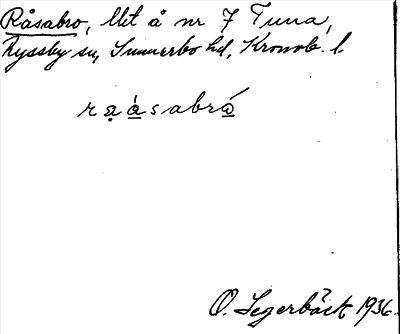 Råsabro, lht å nr 7 Tuna,
Ryssby sn, Sunnerbo hd, Kronob. l
rạà̲sabrá̲
O. Segerbäck 1936.